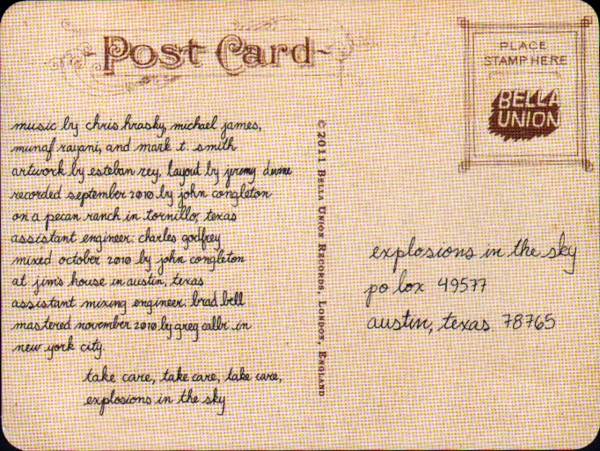 Post Card
PLACE
STAMP HERE
BELLA
UNION
music by chris hrasky, michael james,
munaf rayani, and mark t. smith
artwork by esteban rey, layout by jeremy
recorded september 2010 by john congleton
on a pecan ranch in tornillo, texas
assistant engineer: charles godfrey
mixed october 2010 by john congleton
at jim's house in austin, texas
assistant mixing engineer: brad bell
mastered november 2010 by greg calbi in
new york city.
take care, take care, take care,
explosions in the sky
© 2011 BELLA UNION RECORDS, LONDON, ENGLAND
explosions in the sky
po box 49577
austin, texas 78765